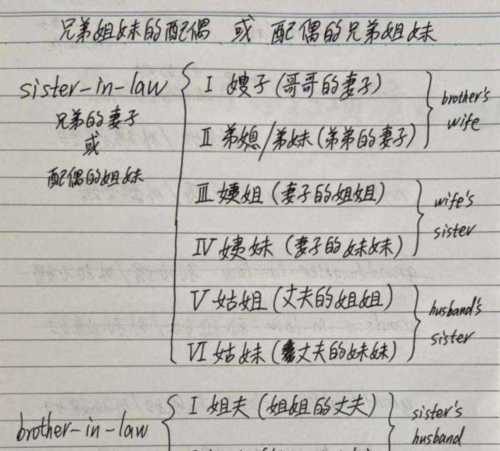 兄弟姐妹的配偶 或 配偶的兄弟姐妹
sister-in-law
兄弟的妻子
或
配偶的姐妹
I 嫂子(哥哥的妻子)
II 弟媳/弟妹(弟弟的妻子)
brother's
wife
III 姨姐(妻子的姐姐)
IV 姨妹(妻子的妹妹)
wife's
sister
V 姑姐(丈夫的姐姐)
VI 姑妹(丈夫的妹妹)
husband's
sister
brother-in-law
I 姐夫(姐姐的丈夫)
sister's
husband